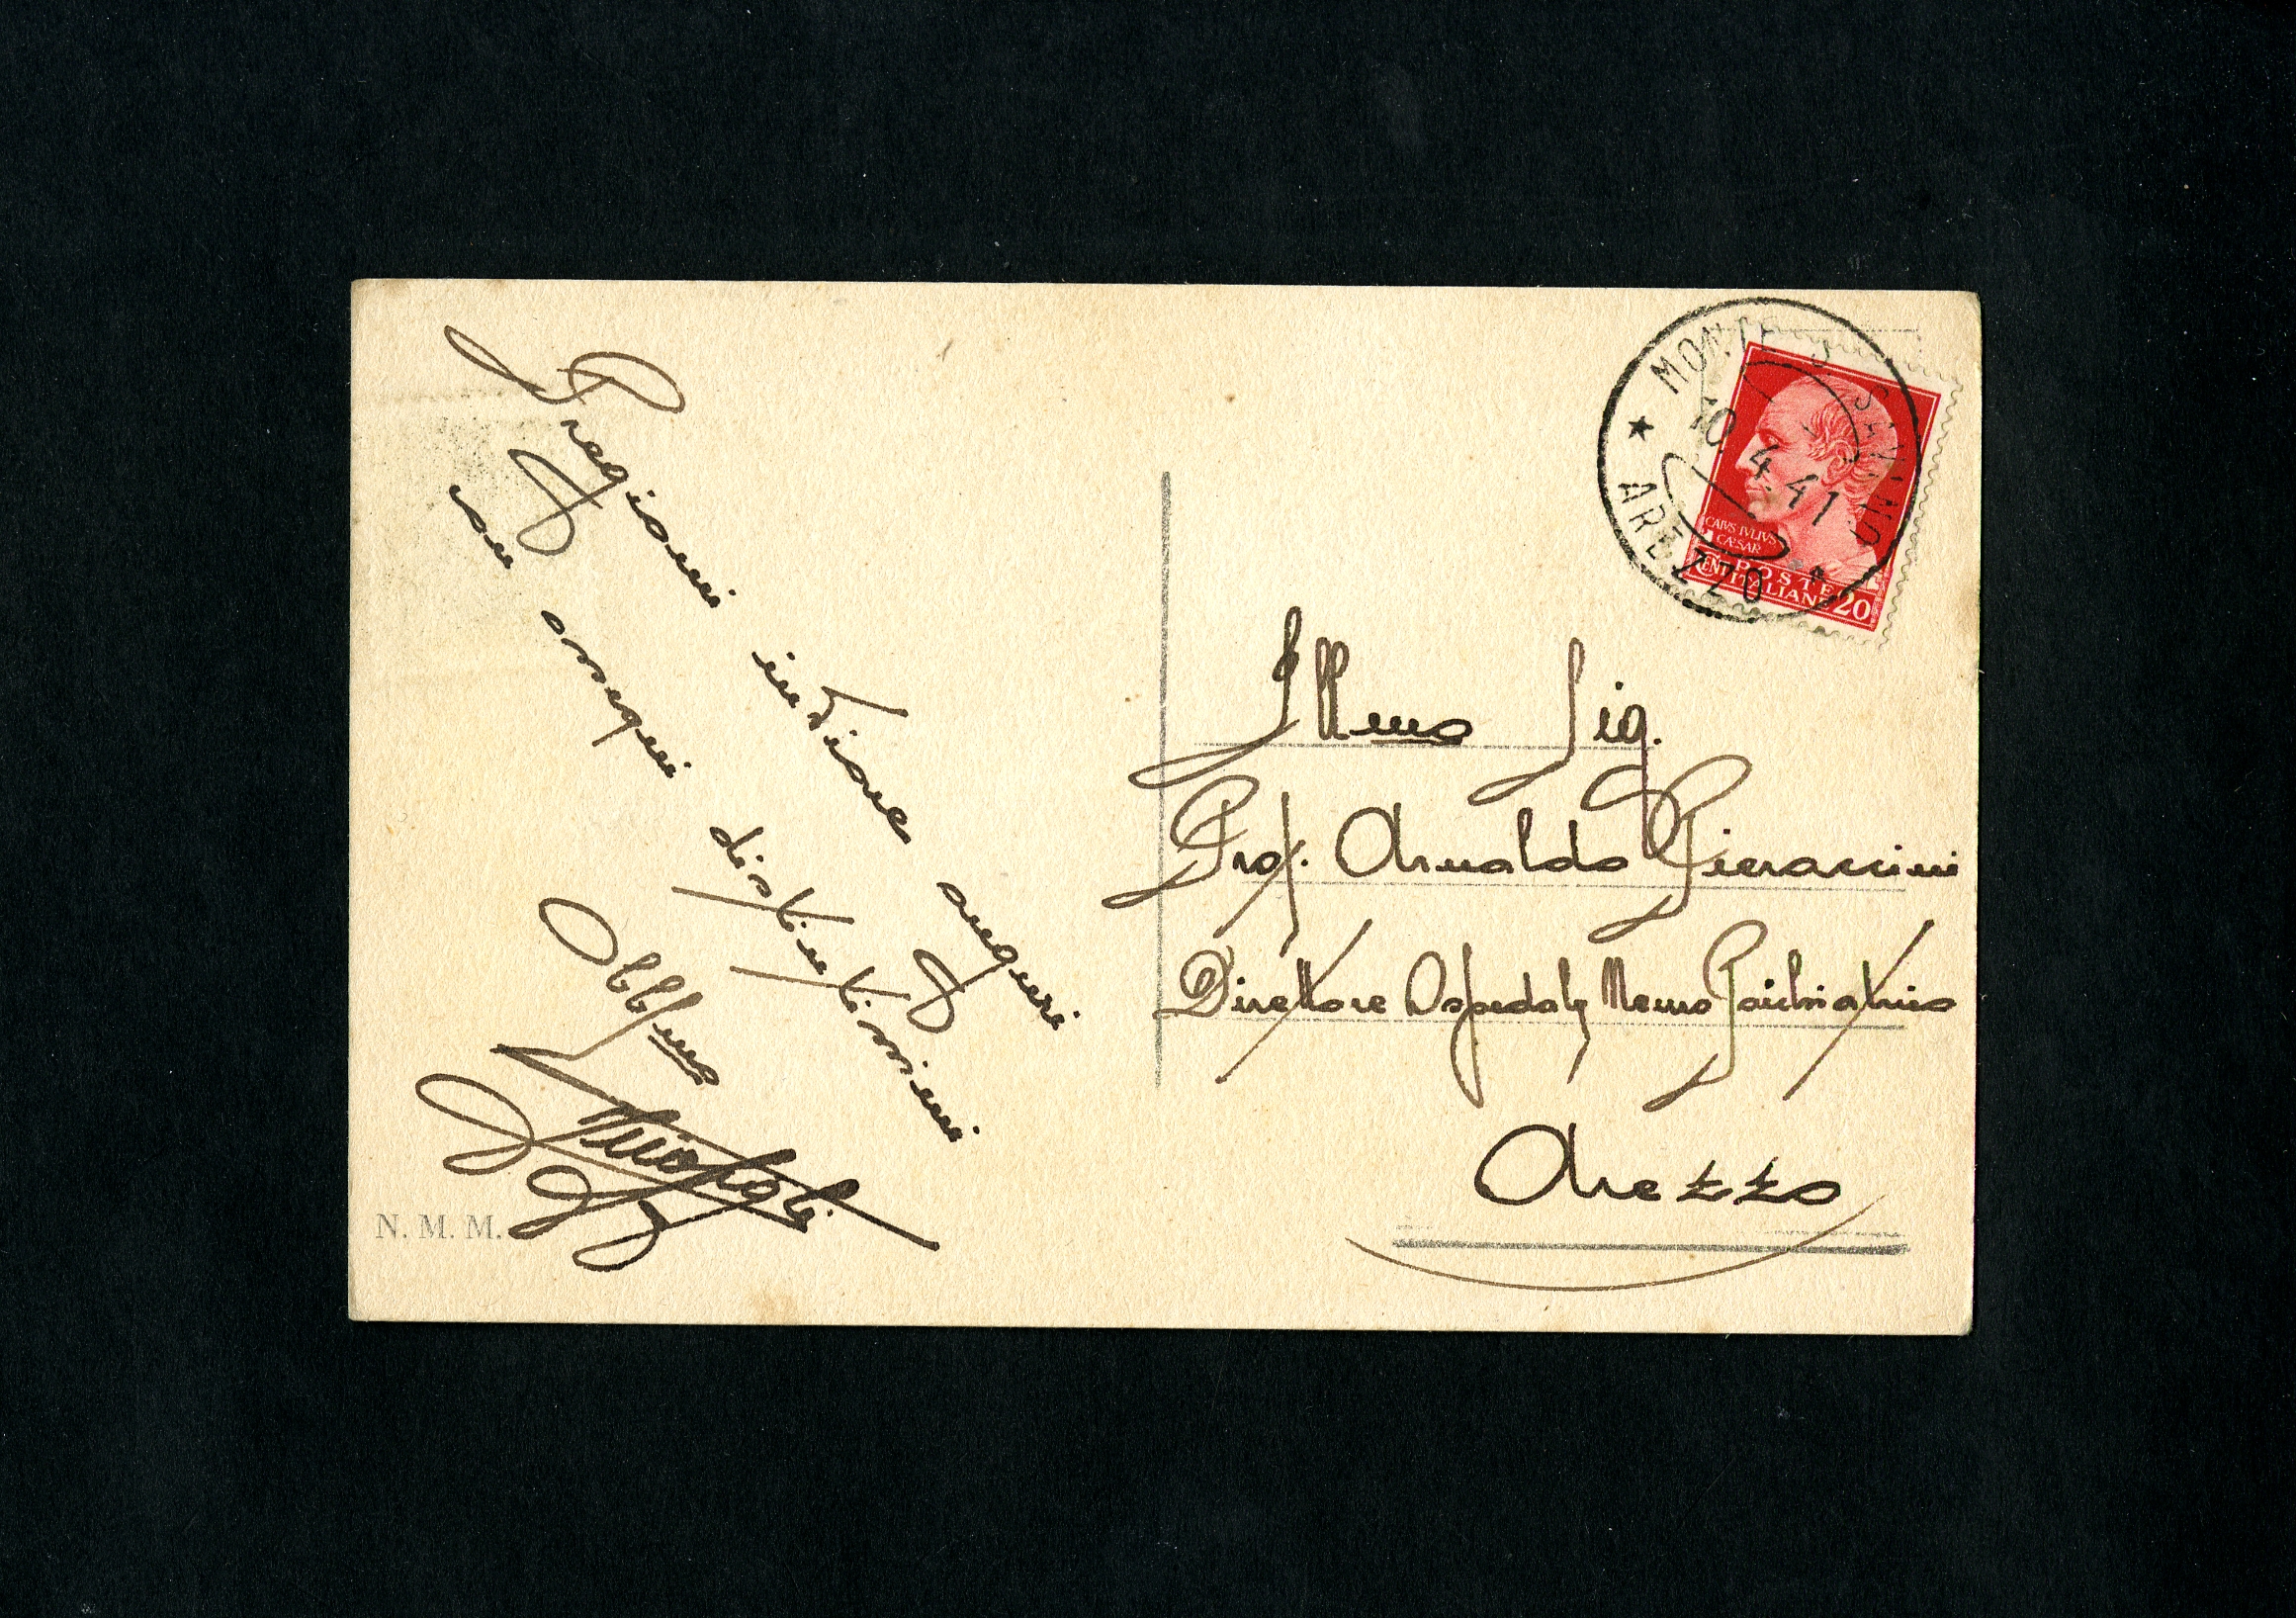 Pregiomi indisone auguri
con ossequi distintissimi
Obbl/mo
N. M. M.
★ MONTE S. SAVINO
10.4.41
AREZZO
CAIVS IVLIVS
CÆSAR
CENT. POSTE
ITALIANE 20
Ill/mo Sig.
Prof. Arnaldo Pieraccini
Direttore Ospedale Neuro Psichiatrico
Arezzo